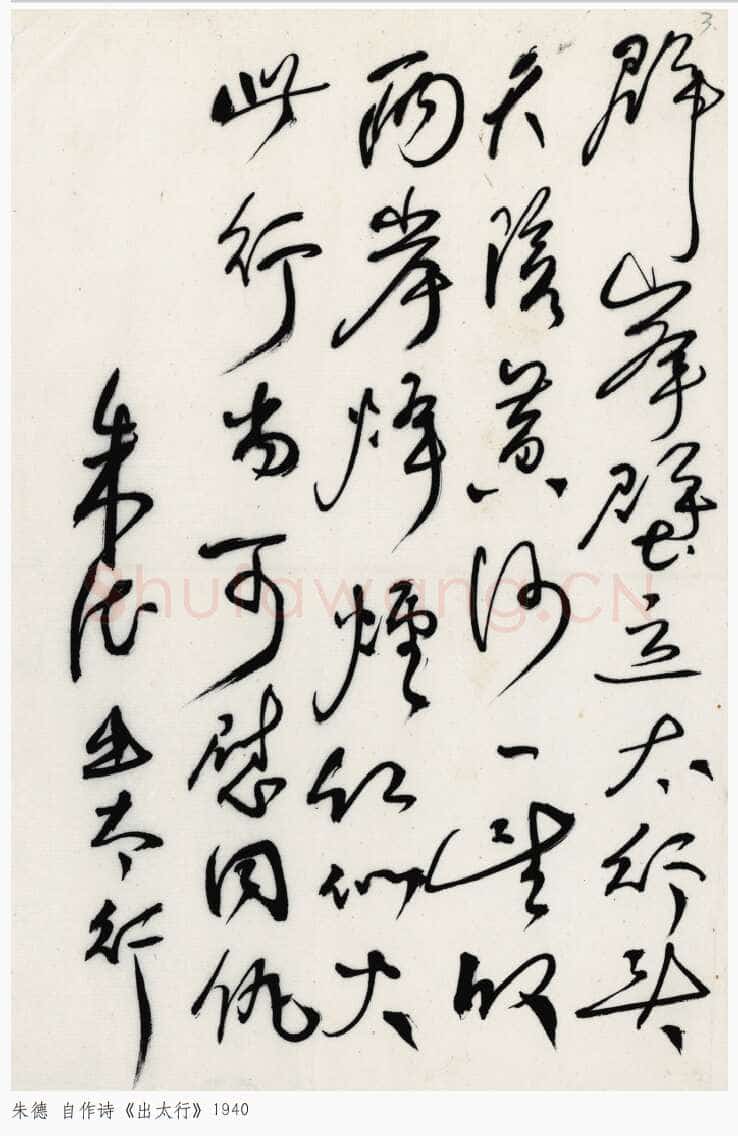 3.
群峯壁立太行头
天险黄河一望收
两岸烽煙红似火
此行当可慰同仇
朱德出太行
Shufawang.CN
朱德 自作诗《出太行》1940